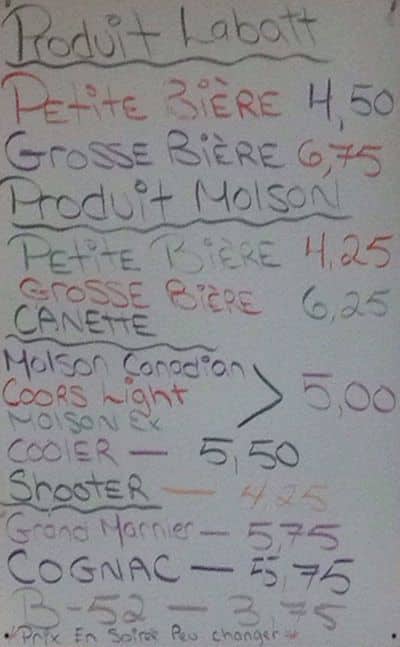 Produit Labatt
Petite Bière 4,50
Grosse Bière 6,75
Produit Molson
Petite Bière 4,25
Grosse Bière 6,25
Canette
Molson Canadian
Coors Light > 5,00
Molson Ex
Cooler — 5,50
Shooter — 4,25
Grand Marnier — 5,75
Cognac — 5,75
B-52 — 3,75
Prix En Soirée Peu changer